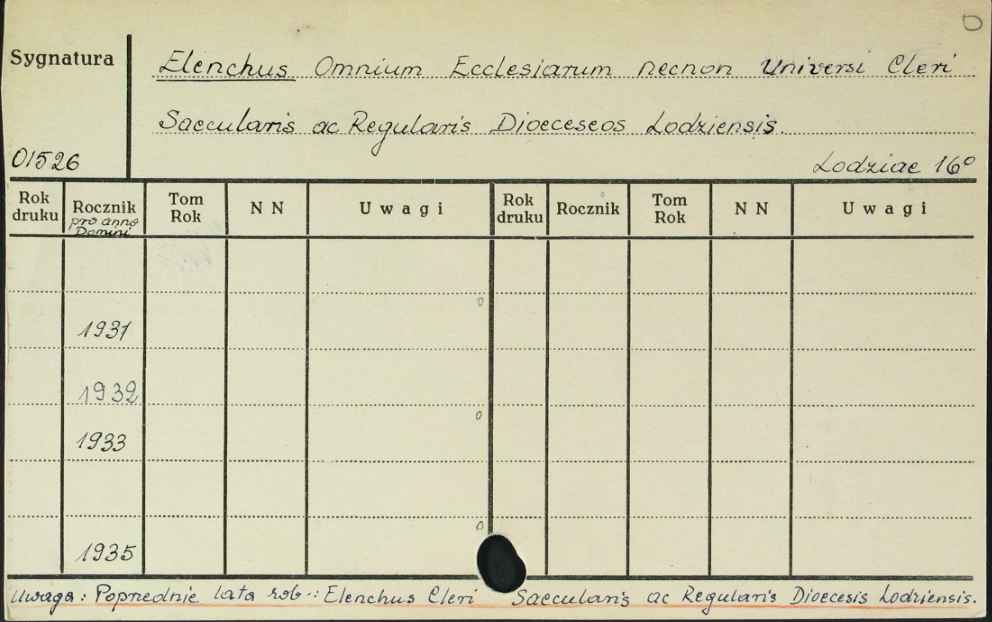 Sygnatura
Elenchus Omnium Ecclesiarum necnon Universi Cleri
Saecularis ac Regularis Dioeceseos Lodziensis.
01526
Lodziae 16°
Rok druku Rocznik pro anno Domini Tom Rok NN Uwagi Rok druku Rocznik Tom Rok NN Uwagi
1931
1932
1933
1935
Uwaga: Poprzednie lata zob.: Elenchus Cleri Saecularis ac Regularis Dioecesis Lodziensis.